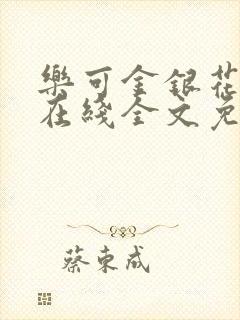 樂可金銀花
在綫全文免
蔡東成